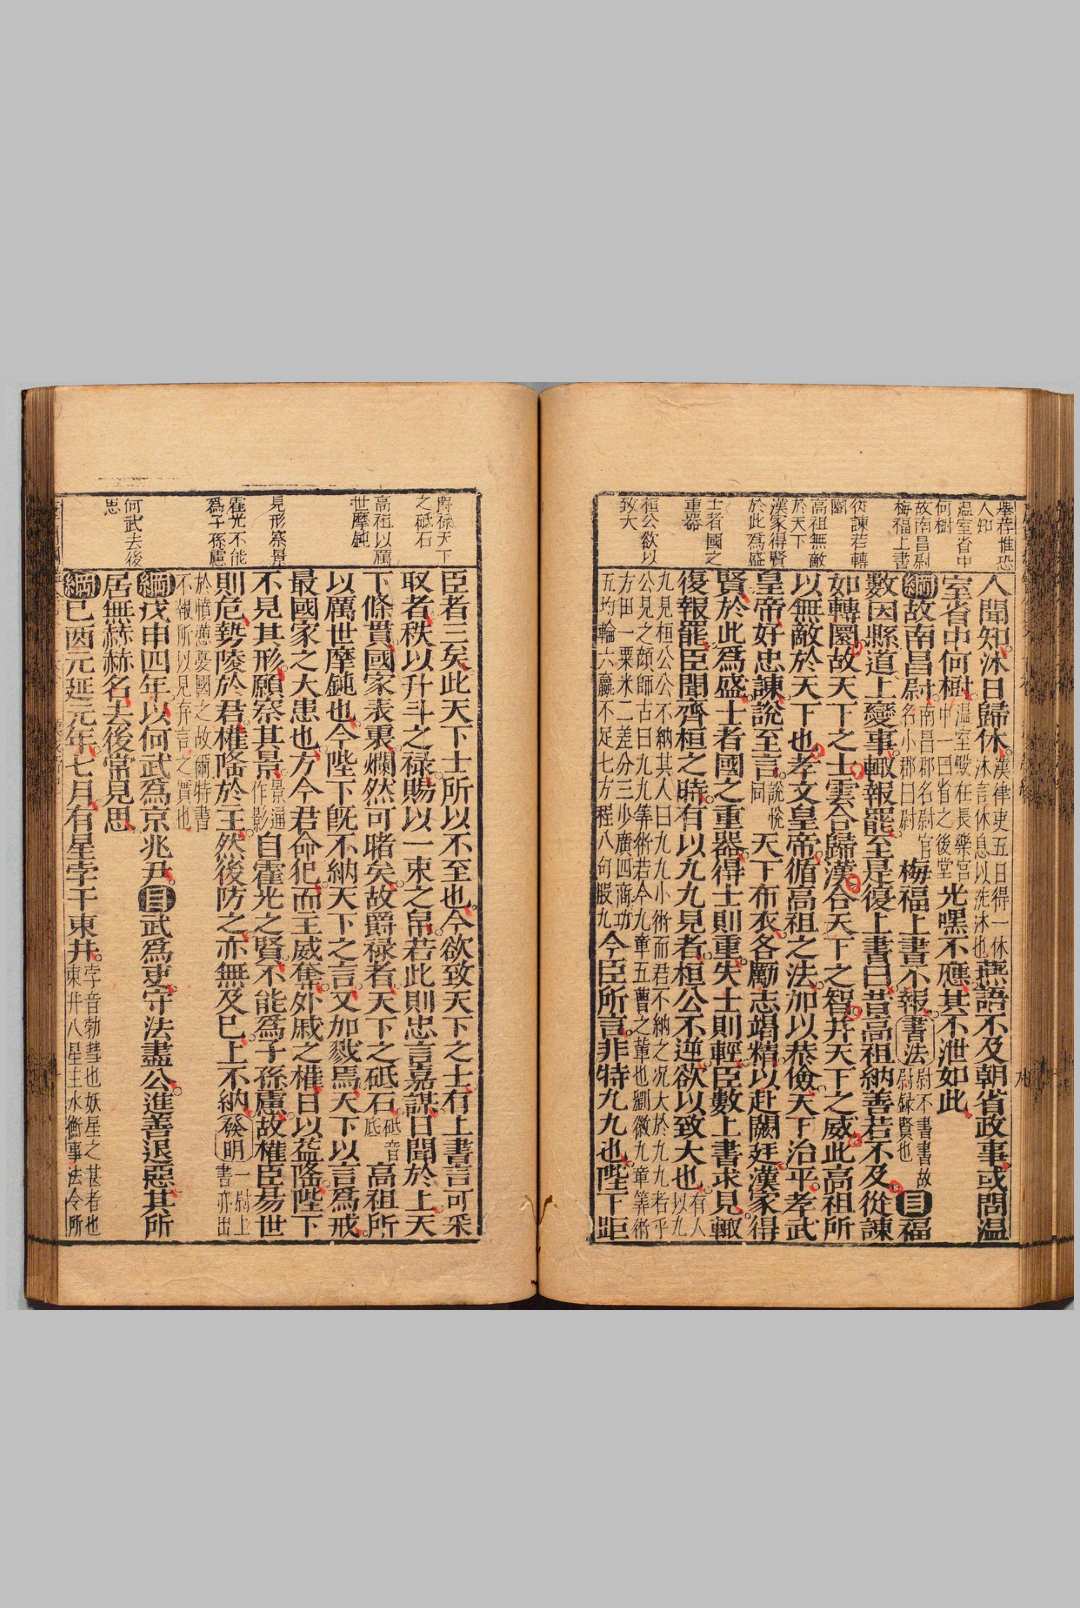 舉存推恐
人知
溫室省中
何樹
故南昌尉
梅福上書
從諫若轉
圜
高祖無敵
於天下
漢家得賢
於此爲盛
士者國之
重器
桓公欲以
致大
人聞知沐日歸休漢律吏五日得一休沐言休息以洗沐也燕語不及朝省政事或問溫
室省中何樹溫室殿在長樂宮中一曰省之後堂光嘿不應其不泄如此
綱故南昌尉南昌郡名尉官名小郡曰尉梅福上書不報書法尉不書書故尉錄賢也目福
數因縣道上變事輒報罷至是復上書曰昔高祖納善若不及從諫
如轉圜故天下之士雲合歸漢合天下之智并天下之威此高祖所
以無敵於天下也孝文皇帝循高祖之法加以恭儉天下治平孝武
皇帝好忠諫說至言說悅同天下布衣各勵志竭精以赴闕廷漢家得
賢於此爲盛士者國之重器得士則重失士則輕臣數上書求見輒
復報罷臣聞齊桓之時有以九九見者桓公不逆欲以致大也有人以九
九見桓公公不納其人曰九九小術而君不納之况大於九九者乎
公見之顔師古曰九九等術若今九章五曹之輩也劉徽九章筭術
方田一粟米二差分三少廣四商功
五均輸六贏不足七方程八句股九今臣所言非特九九也陛下距
臣者三矣此天下士所以不至也今欲致天下之士有上書言可采
取者秩以升斗之祿賜以一束之帛若此則忠言嘉謀日聞於上天
下條貫國家表裏爛然可睹矣故爵祿者天下之砥石砥音底高祖所
以厲世摩鈍也今陛下旣不納天下之言又加戮焉天下以言爲戒
最國家之大患也方今君命犯而主威奪外戚之權日以益隆陛下
不見其形願察其景景通作影自霍光之賢不能爲子孫慮故權臣易世
則危勢陵於君權隆於主然後防之亦無及巳上不納發明一尉上書亦出
於憤懣憂國之故爾特書
不報所以見弃言之實也
綱戊申四年以何武爲京兆尹目武爲吏守法盡公進善退惡其所
居無赫赫名去後常見思
綱巳酉元延元年七月有星孛于東井孛音勃彗也妖星之甚者也東井八星主水衡事法令所
爵祿天下
之砥石
高祖以厲
世摩鈍
見形察景
霍光不能
爲子孫慮
何武去後
思